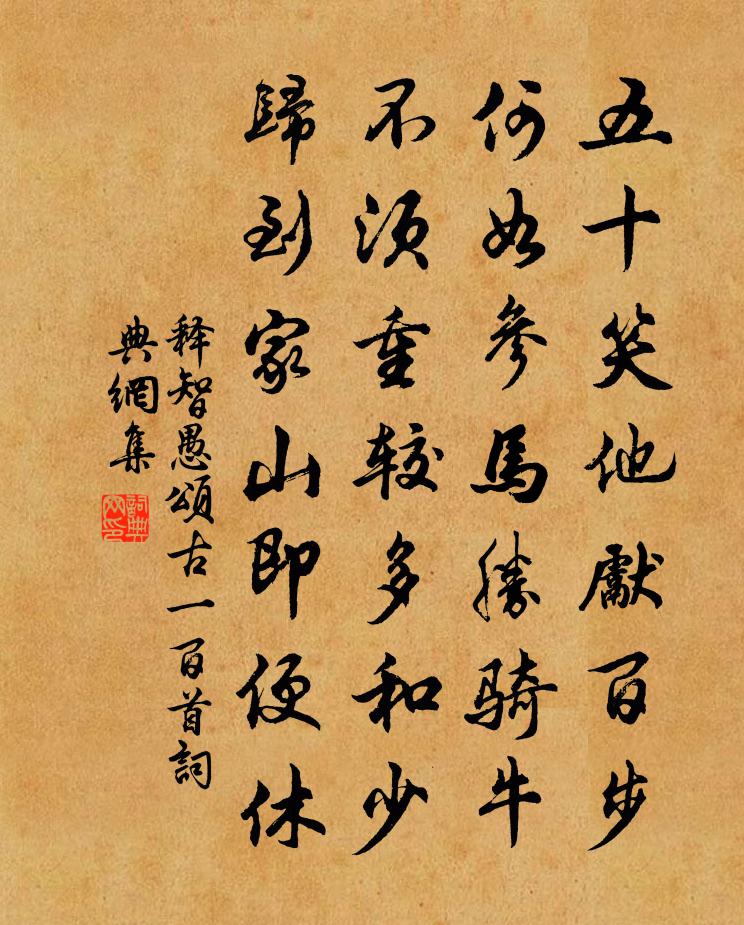 五十笑他獻百步
何如參馬勝騎牛
不須重較多和少
歸到家山即便休
释智愚頌古一百首詞
典網集
詞典
网印